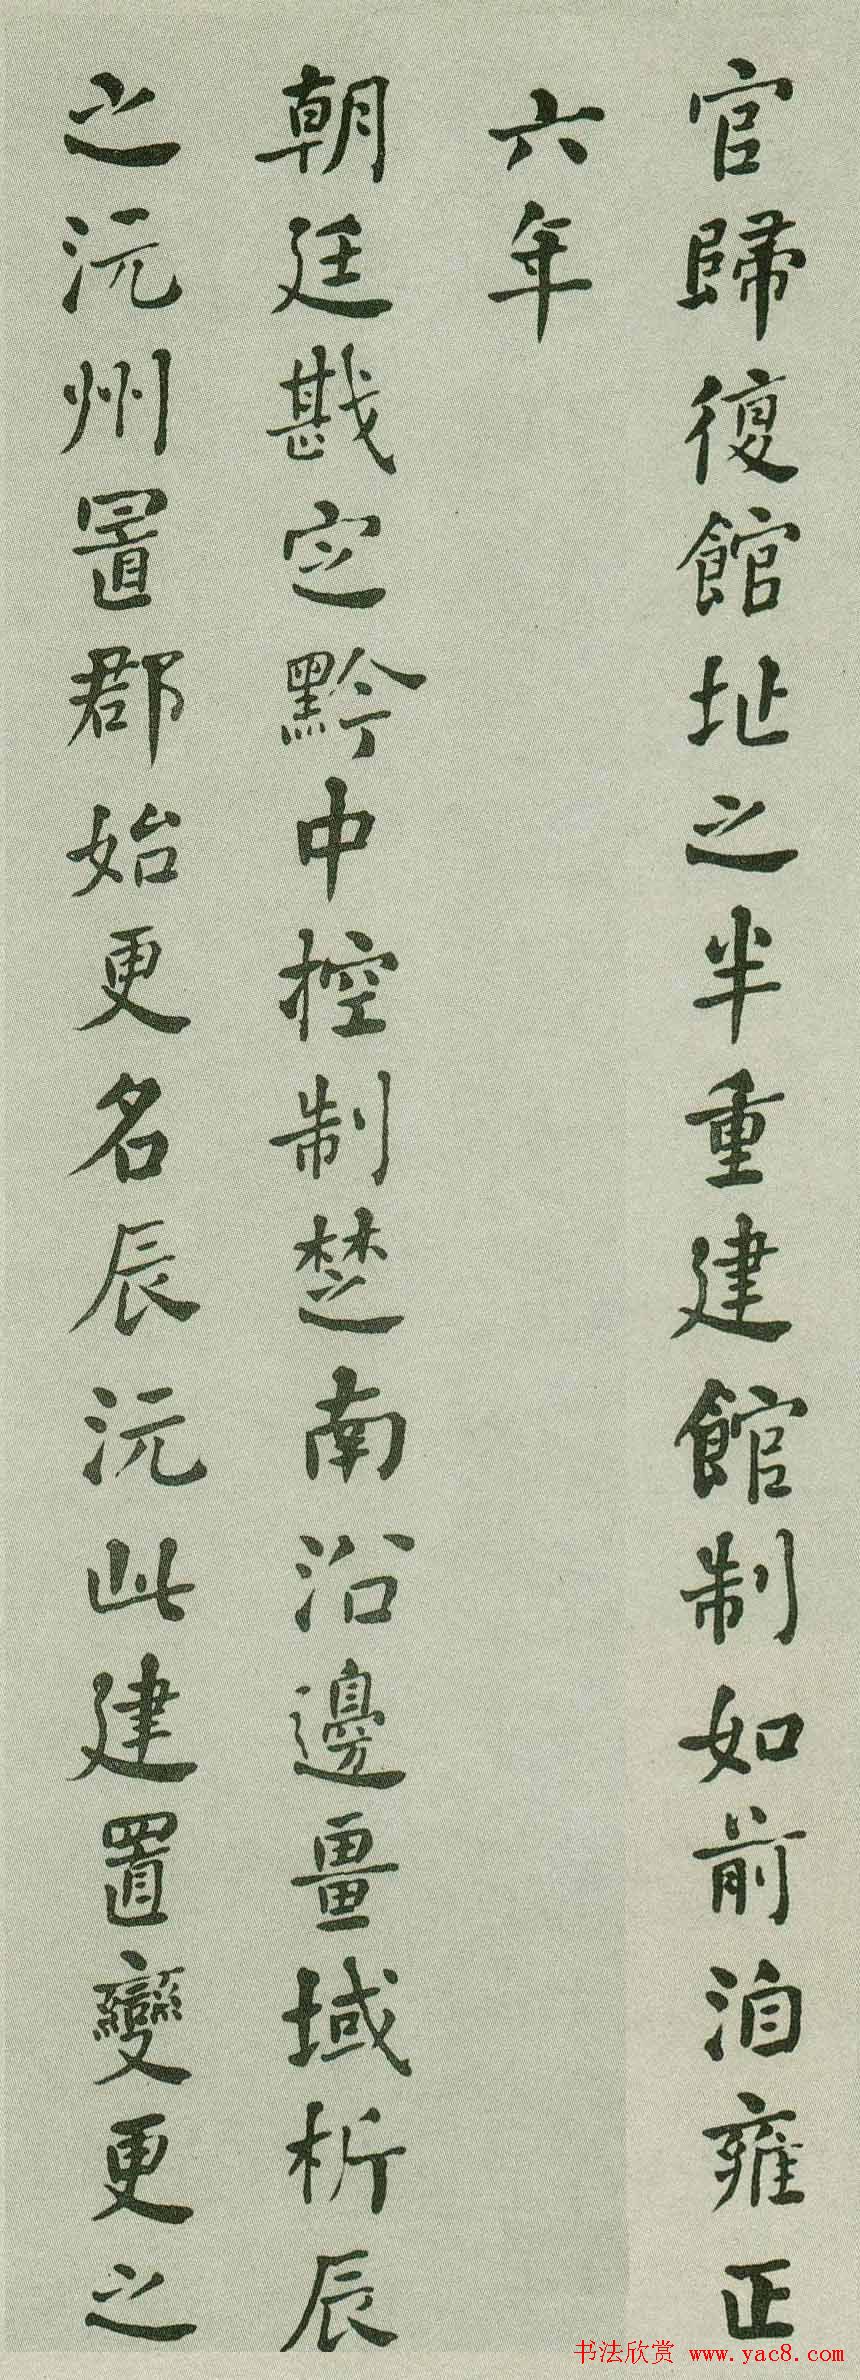 官歸復館址之半重建館制如前洎雍正
六年
朝廷戡定黔中控制楚南沿邊畺域析辰
之沅州置郡始更名辰沅此建置變更之
书法欣赏 www.yac8.com